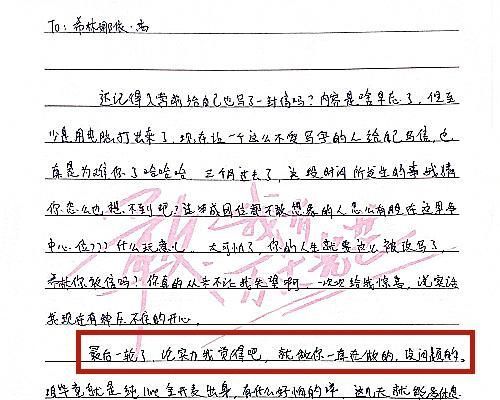 To: 希林娜依·高
还记得入营前给自己也写了一封信吗？内容是啥早忘了，但至
少是用电脑打出来了，现在让一个这么不爱写字的人给自己写信，也
真是为难你了哈哈哈 三个月过去了，这段时间所发生的事我猜
你怎么也想不到吧？连成团位都不敢想象的人怎么有胆在这里争
中心位？？？什么玩意儿 太可怕了，你的人生就要这么被改写了，
希林你敢信吗？你真的从来不让我失望啊 一次次给我惊喜，说实话
我现在有种压不住的开心。
最后一轮了，论实力我觉得吧，就做你一直在做的，没问题的。
咱毕竟就是纯live全开麦出身，有什么好怕的呀